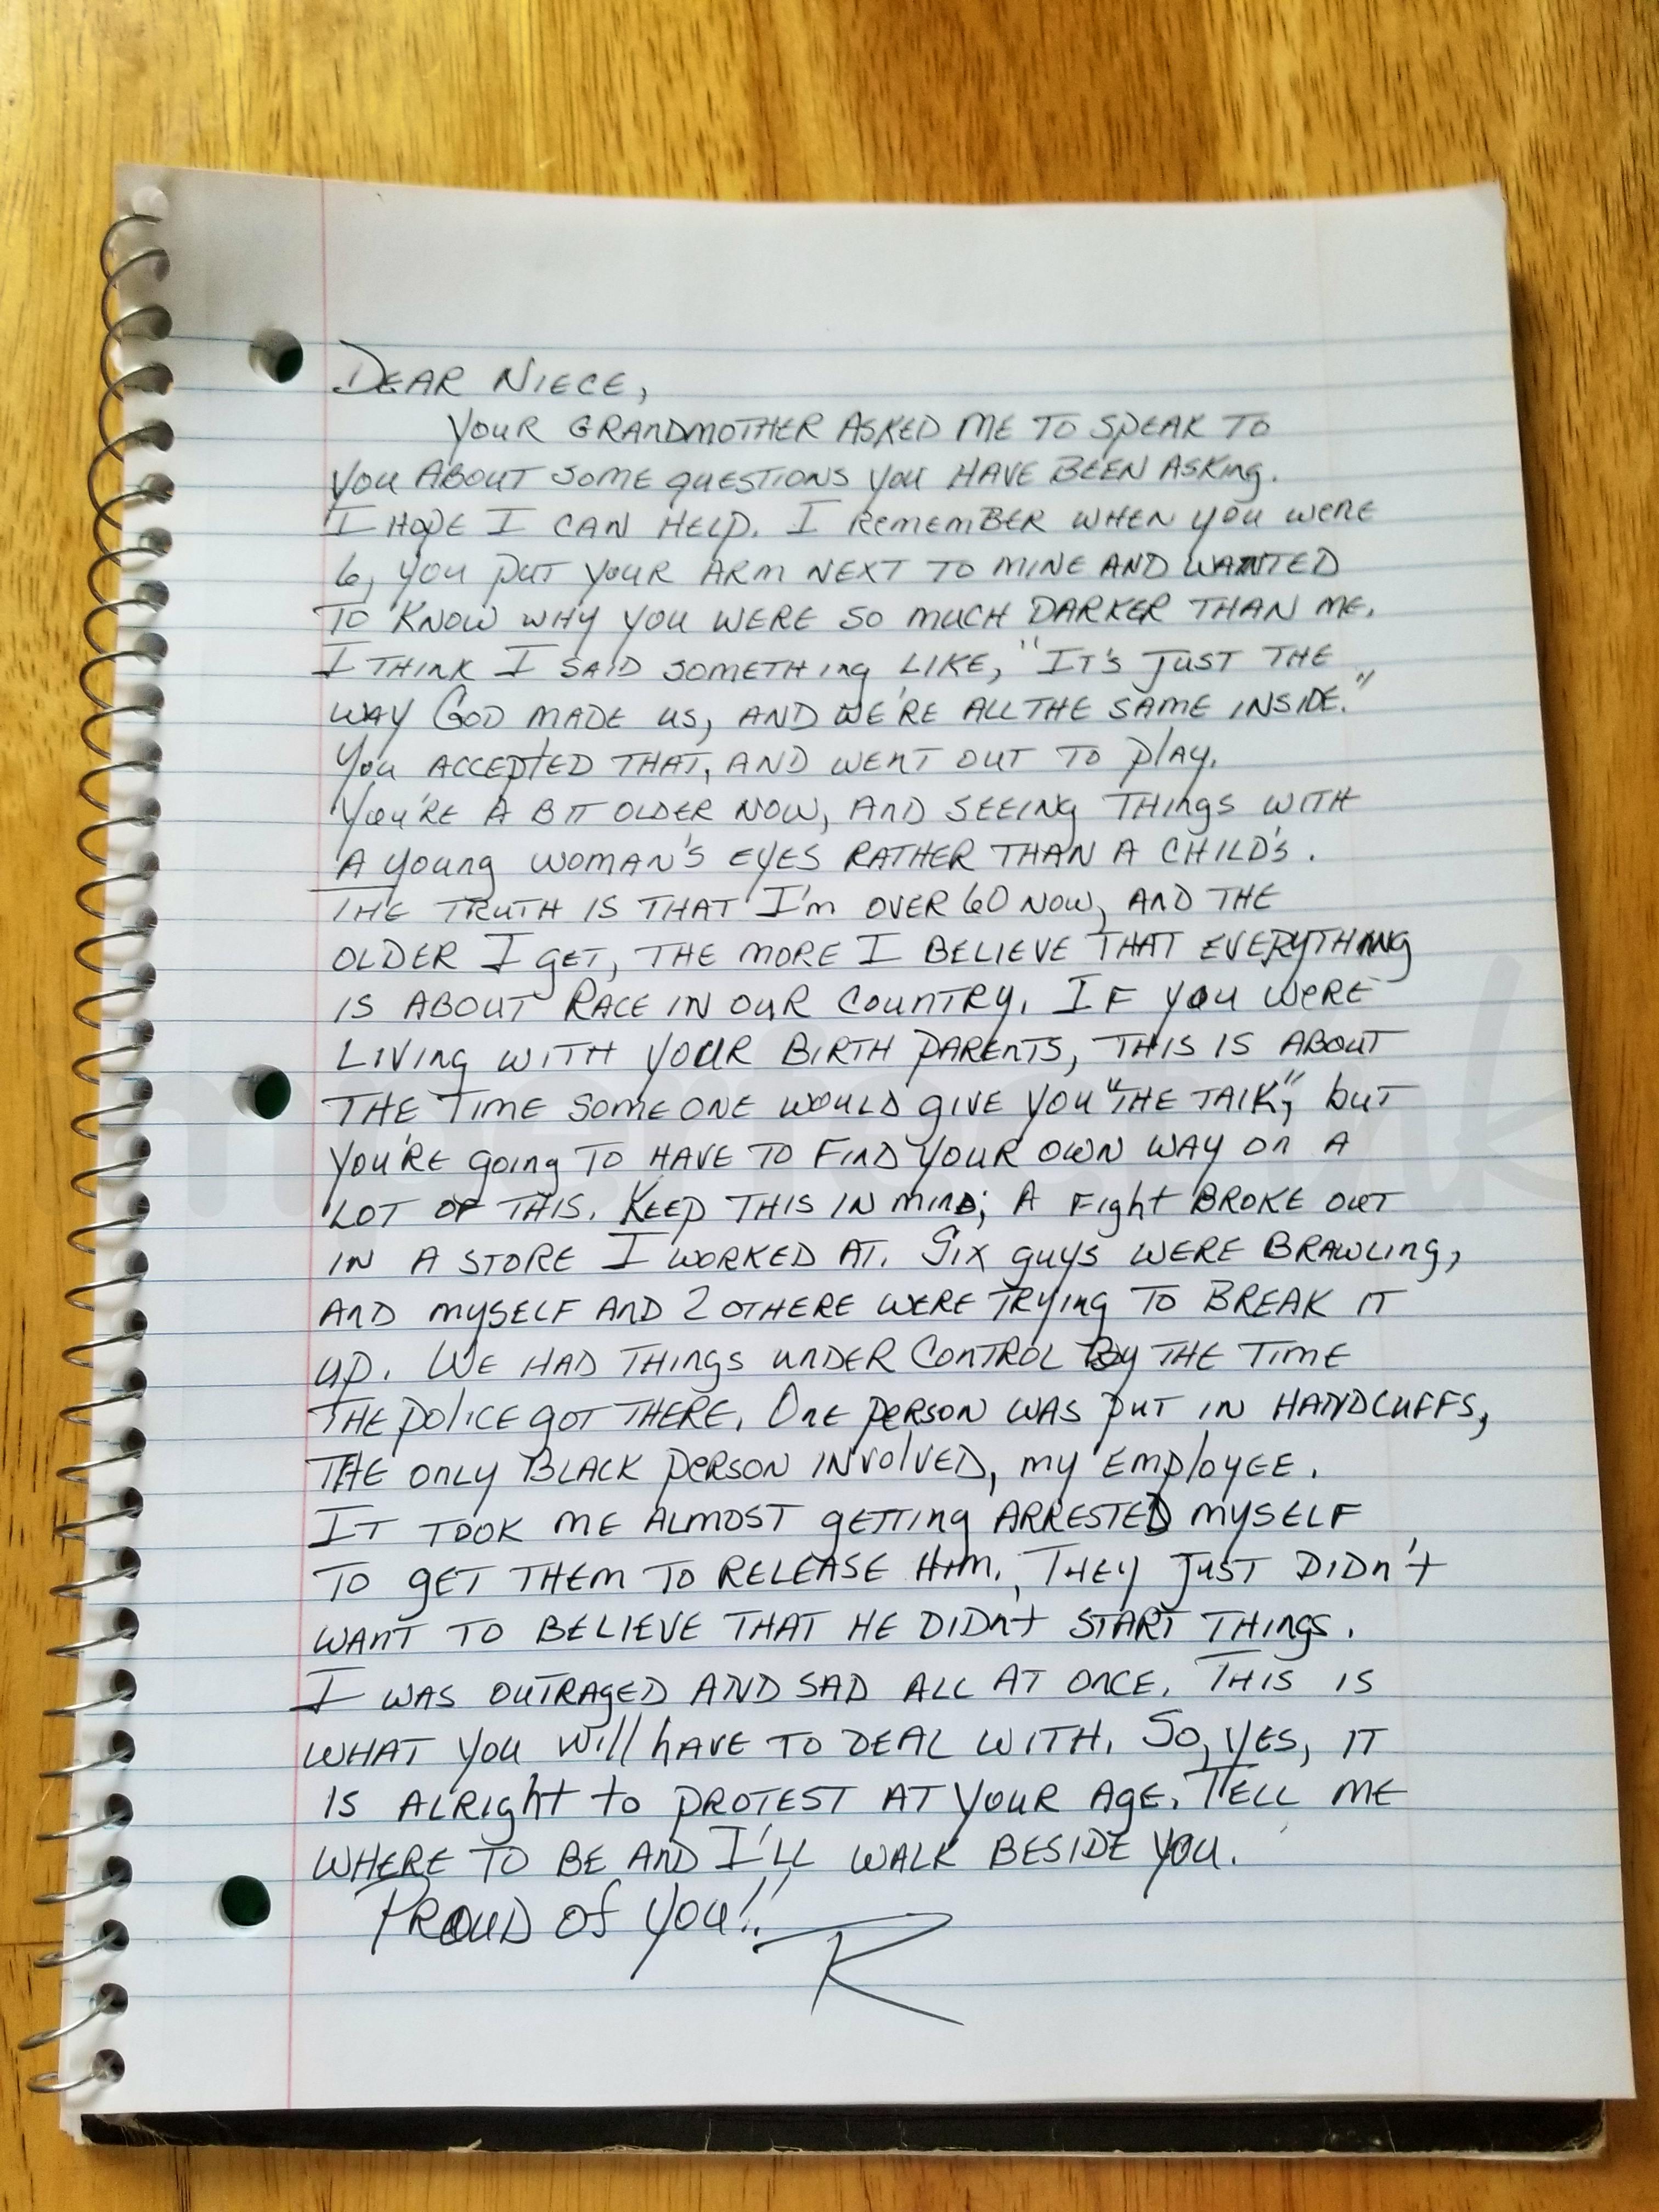 DEAR NIECE,
YOUR GRANDMOTHER ASKED ME TO SPEAK TO
YOU ABOUT SOME QUESTIONS YOU HAVE BEEN ASKING.
I HOPE I CAN HELP. I REMEMBER WHEN YOU WERE
6, YOU PUT YOUR ARM NEXT TO MINE AND WANTED
TO KNOW WHY YOU WERE SO MUCH DARKER THAN ME.
I THINK I SAID SOMETHING LIKE, "IT'S JUST THE
WAY GOD MADE US, AND WE'RE ALL THE SAME INSIDE."
YOU ACCEPTED THAT, AND WENT OUT TO PLAY.
YOU'RE A BIT OLDER NOW, AND SEEING THINGS WITH
A YOUNG WOMAN'S EYES RATHER THAN A CHILD'S.
THE TRUTH IS THAT I'M OVER 60 NOW, AND THE
OLDER I GET, THE MORE I BELIEVE THAT EVERYTHING
IS ABOUT RACE IN OUR COUNTRY. IF YOU WERE
LIVING WITH YOUR BIRTH PARENTS, THIS IS ABOUT
THE TIME SOMEONE WOULD GIVE YOU "THE TALK", BUT
YOU'RE GOING TO HAVE TO FIND YOUR OWN WAY ON A
LOT OF THIS. KEEP THIS IN MIND; A FIGHT BROKE OUT
IN A STORE I WORKED AT. SIX GUYS WERE BRAWLING,
AND MYSELF AND 2 OTHERE WERE TRYING TO BREAK IT
UP. WE HAD THINGS UNDER CONTROL BY THE TIME
THE POLICE GOT THERE. ONE PERSON WAS PUT IN HANDCUFFS,
THE ONLY BLACK PERSON INVOLVED, MY EMPLOYEE.
IT TOOK ME ALMOST GETTING ARRESTED MYSELF
TO GET THEM TO RELEASE HIM. THEY JUST DIDN'T
WANT TO BELIEVE THAT HE DIDN'T START THINGS.
I WAS OUTRAGED AND SAD ALL AT ONCE. THIS IS
WHAT YOU WILL HAVE TO DEAL WITH. SO, YES, IT
IS ALRIGHT TO PROTEST AT YOUR AGE. TELL ME
WHERE TO BE AND I'LL WALK BESIDE YOU.
PROUD OF YOU!!
R